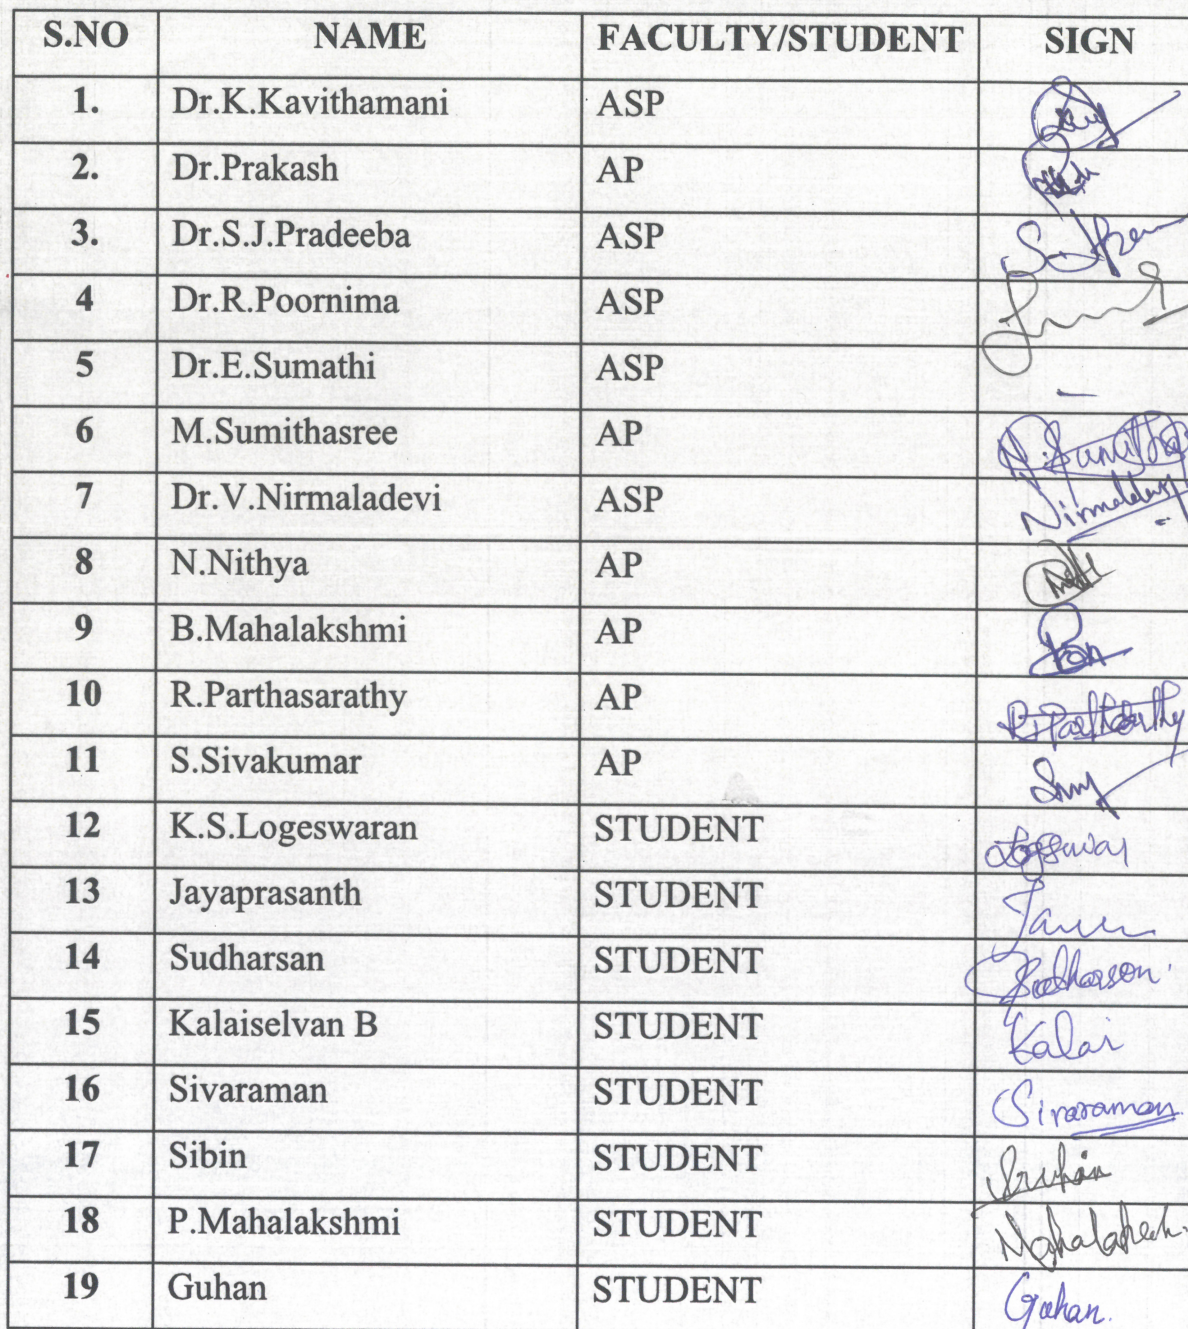 S.NO NAME FACULTY/STUDENT SIGN
1. Dr.K.Kavithamani ASP
2. Dr.Prakash AP
3. Dr.S.J.Pradeeba ASP
4 Dr.R.Poornima ASP
5 Dr.E.Sumathi ASP -
6 M.Sumithasree AP
7 Dr.V.Nirmaladevi ASP
8 N.Nithya AP
9 B.Mahalakshmi AP
10 R.Parthasarathy AP
11 S.Sivakumar AP
12 K.S.Logeswaran STUDENT
13 Jayaprasanth STUDENT
14 Sudharsan STUDENT
15 Kalaiselvan B STUDENT Kalai
16 Sivaraman STUDENT Sivaraman
17 Sibin STUDENT
18 P.Mahalakshmi STUDENT
19 Guhan STUDENT Guhan.